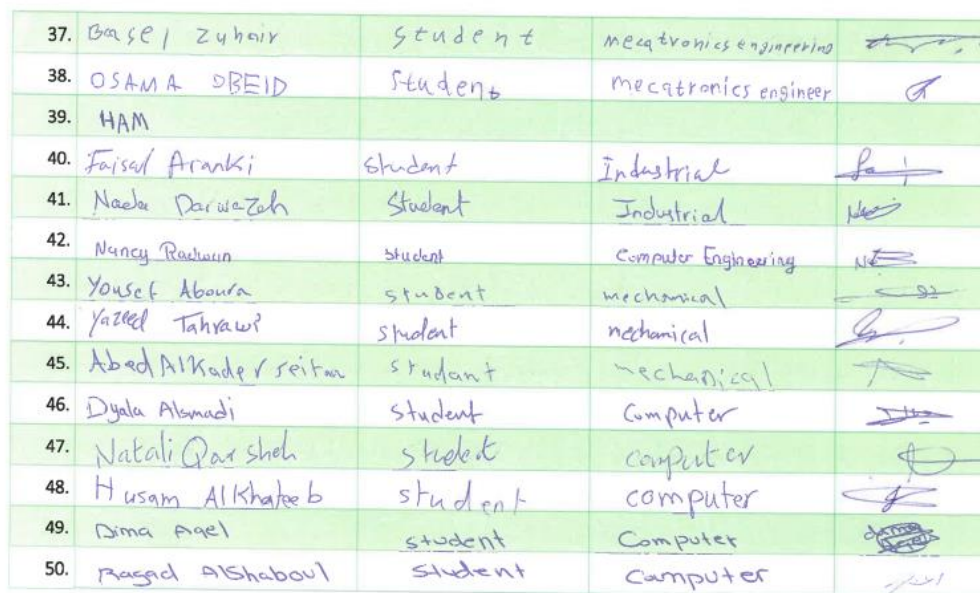 37. Basel Zuhair student mecatronics engineering
38. OSAMA OBEID student mecatronics engineer
39. HAM
40. Faisal Aranki student Industrial
41. Nada Darwazeh Student Industrial
42. Nancy Radwan student Computer Engineering
43. Yousef Aboura student mechanical
44. Yazeed Tahrawi student mechanical
45. Abed AlKader student mechanical
46. Dyala Alsmadi student Computer
47. Natali Qarsheh student computer
48. Husam AlKhateeb student computer
49. Dima Aqel student Computer
50. Ragad AlShaboul student computer